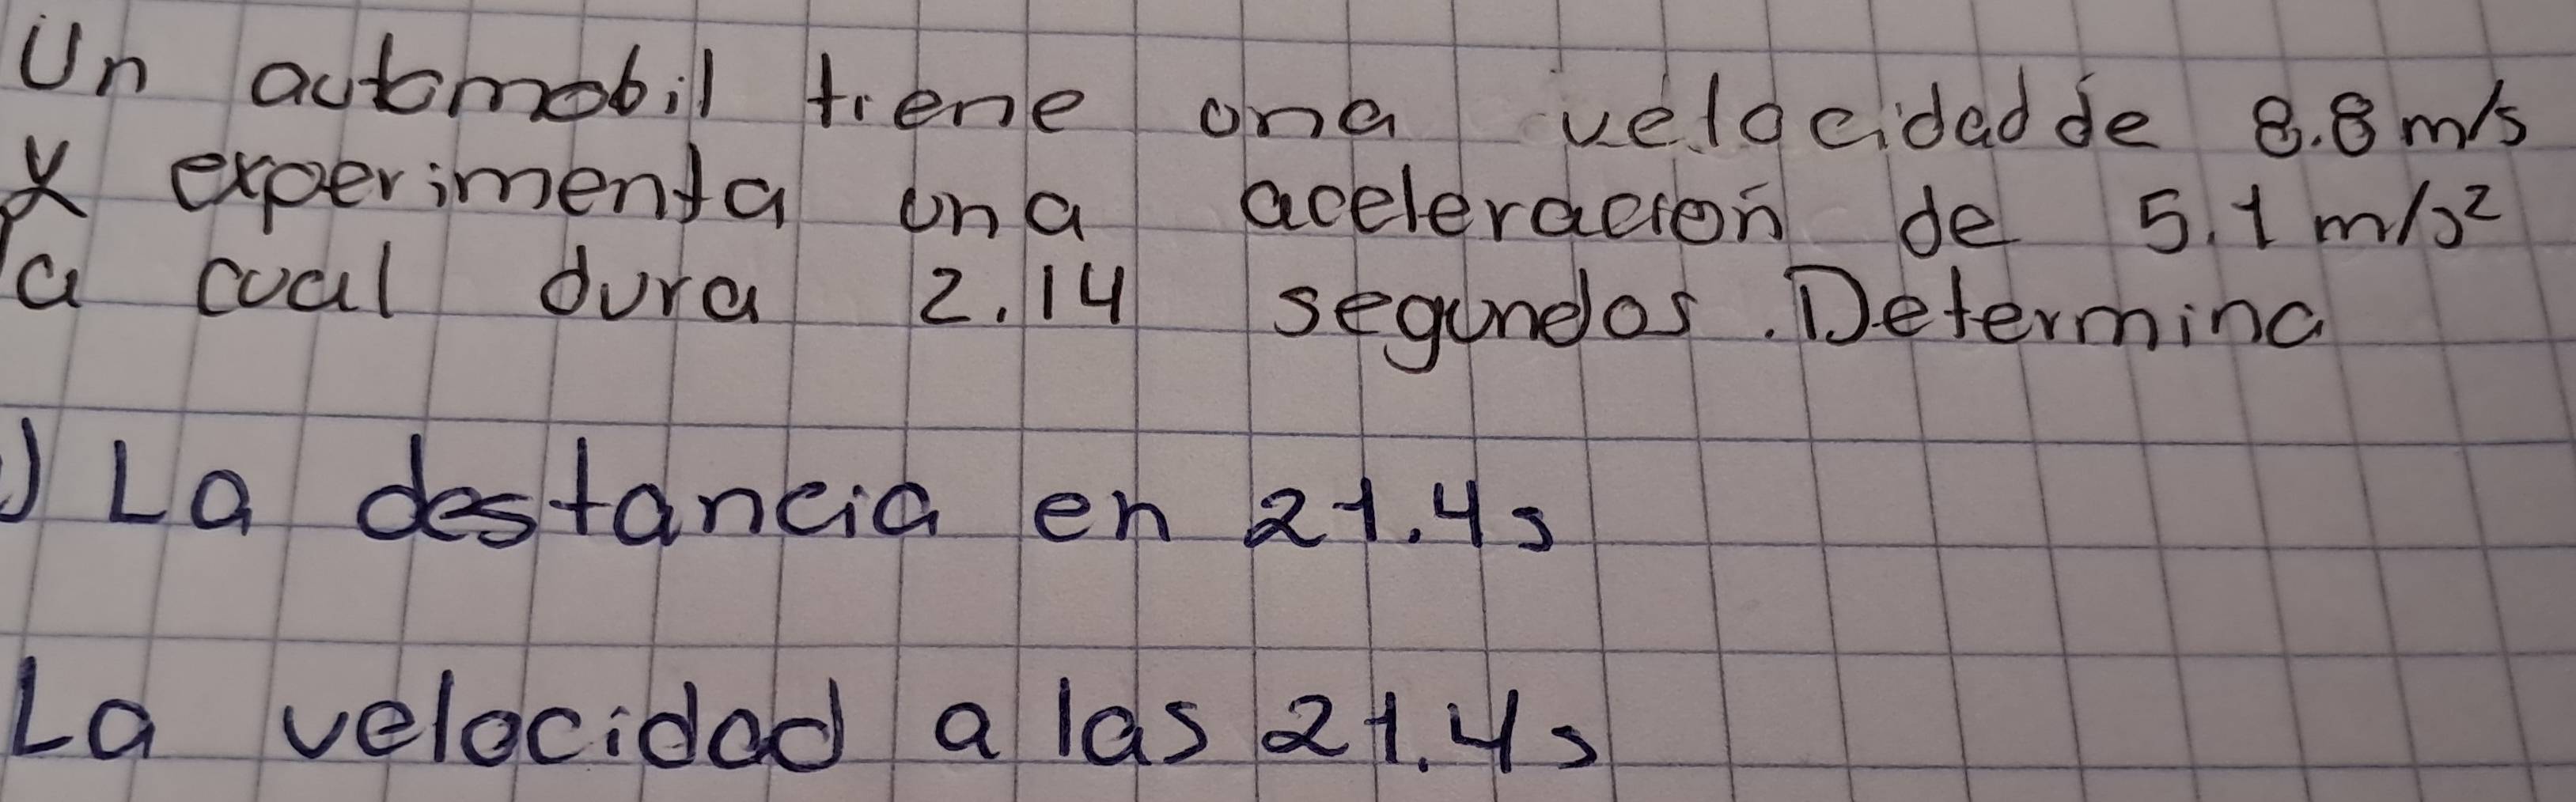 Un automobil tiene una velocidad de 8.8 m/s
y experimenta una aceleración de 5.1 m/s²
la cual dura 2.14 segundos. Determina
) La destancia en 21.4s
La velocidad a las 21.4s